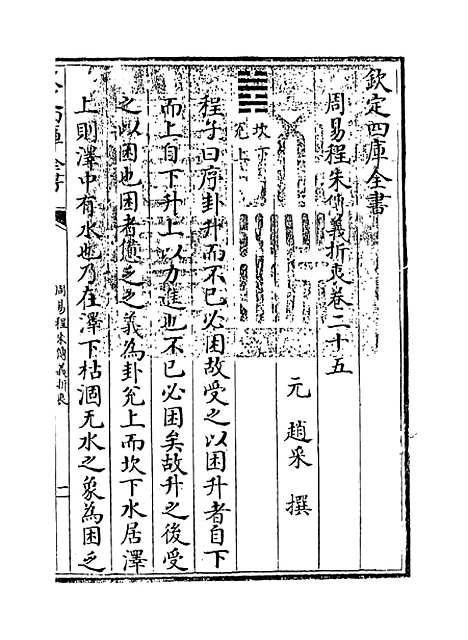 欽定四庫全書
周易程朱傳義折衷卷二十五
元 趙采 撰
坎下
兊上
程子曰序卦升而不已必困故受之以困升者自下
而上自下升上以力進也不已必困矣故升之後受
之以困也困者憊乏之義為卦兊上而坎下水居澤
上則澤中有水也乃在澤下枯涸无水之象為困乏
周易程朱傳義折衷
一